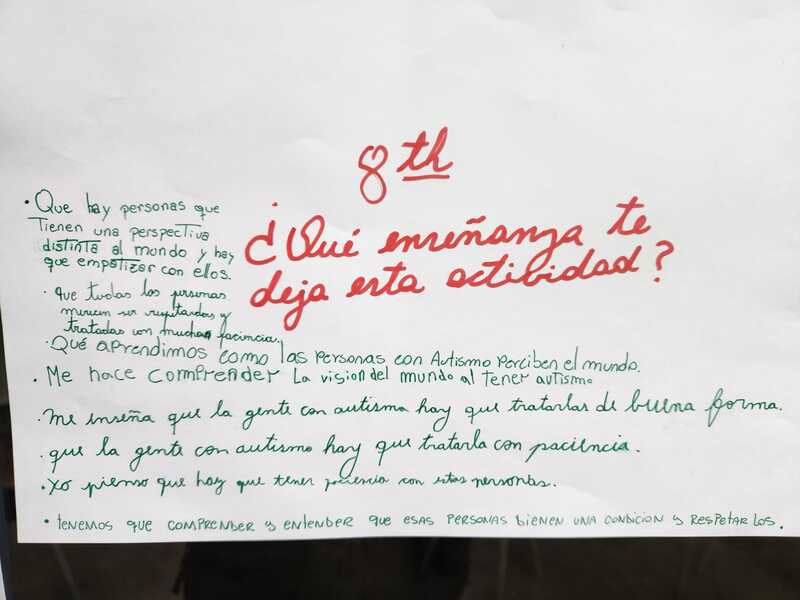 8th
¿Qué enseñanza te
deja esta actibidad?
• Que hay personas que
Tienen una perspectiva
distinta al mundo y hay
que empatizar con ellos.
• que todas las personas
merecen ser respetardas y
tratadas con mucha paciencia.
• Qué aprendimos como las personas con Autismo perciben el mundo.
• Me hace comprender La vision del mundo al tener autismo
• me enseña que la gente con autismo hay que tratarlas de buena forma.
• que la gente con autismo hay que tratarla con paciencia.
• Yo pienso que hay que tener paciencia con estas personas.
• tenemos que comprender y entender que esas personas bienen una condicion y respetar los.